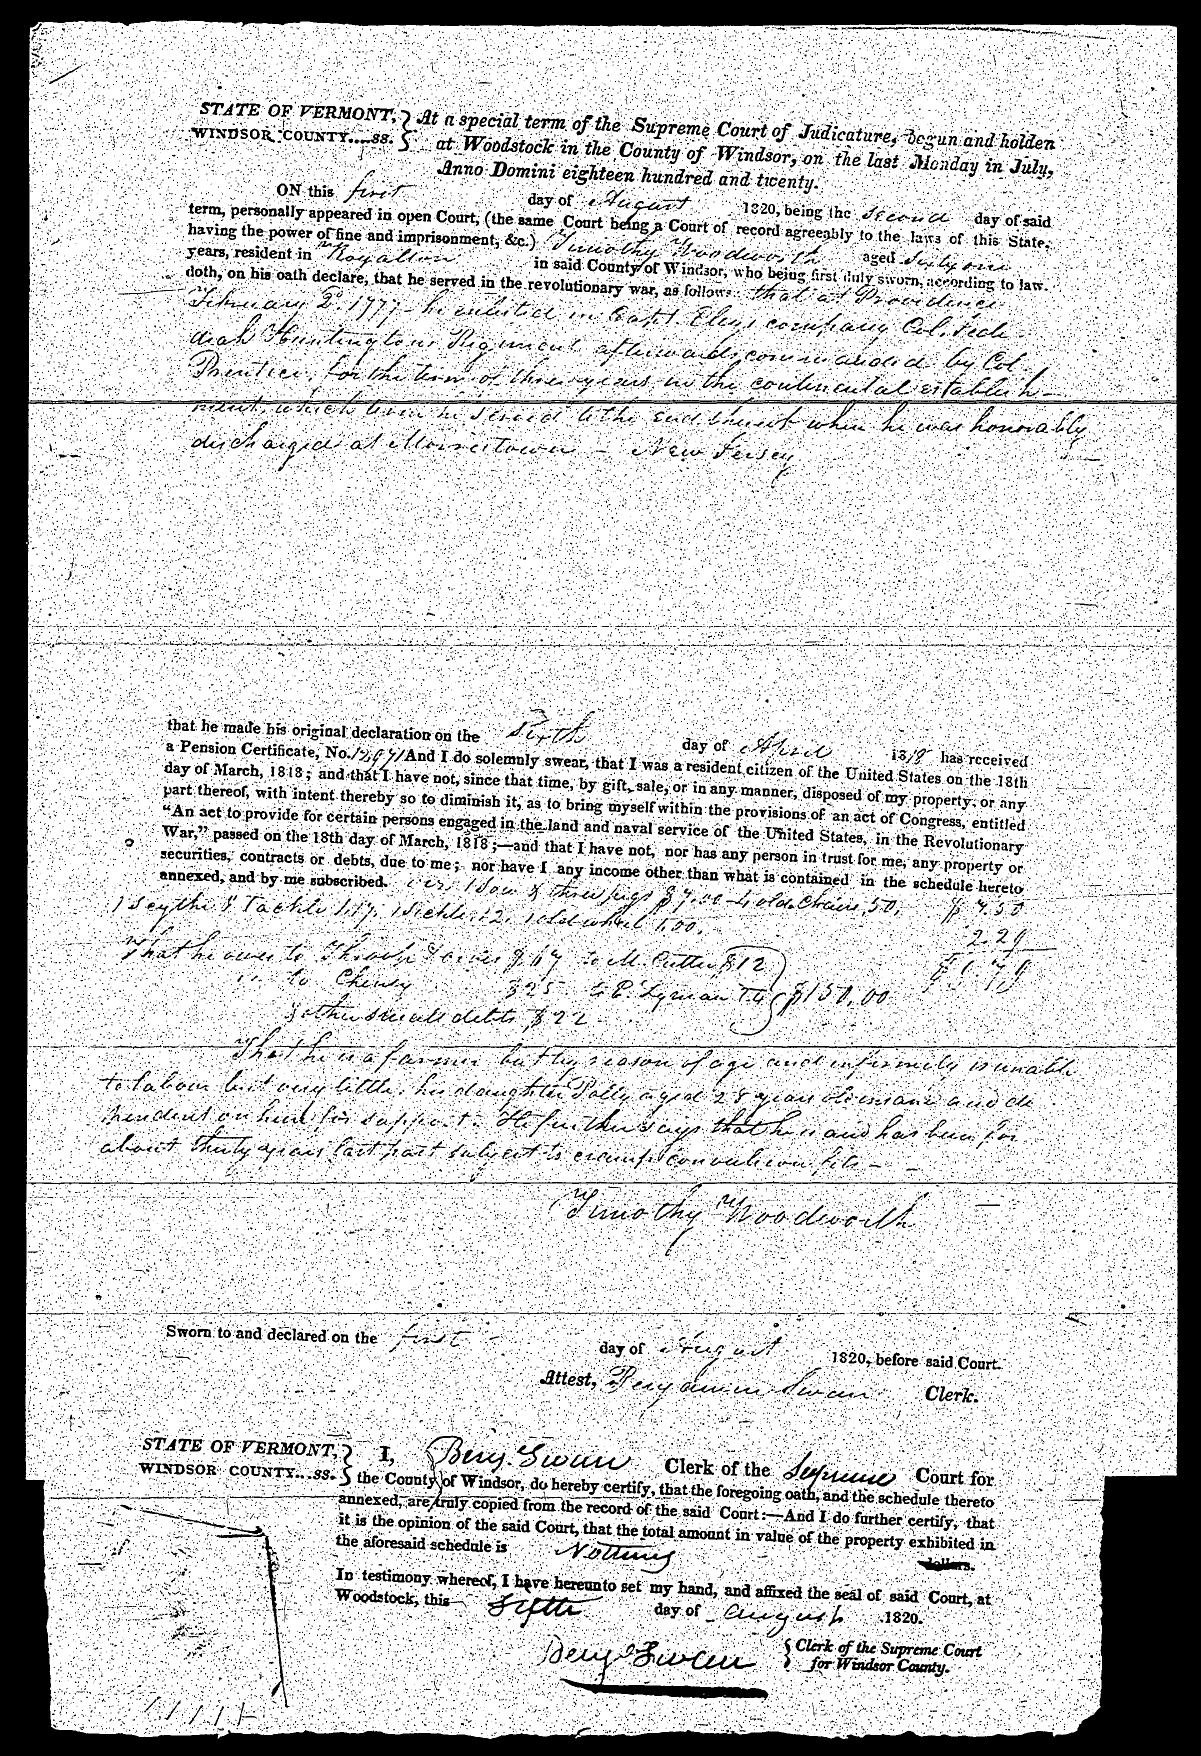 STATE OF VERMONT,
WINDSOR COUNTY....ss.
At a special term of the Supreme Court of Judicature, begun and holden
at Woodstock in the County of Windsor, on the last Monday in July,
Anno Domini eighteen hundred and twenty.
ON this first day of August 1820, being the second day of said
term, personally appeared in open Court, (the same Court being a Court of record agreeably to the laws of this State,
having the power of fine and imprisonment, &c.) Timothy Woodworth aged sixty one
years, resident in Royalton in said County of Windsor, who being first duly sworn, according to law.
doth, on his oath declare, that he served in the revolutionary war, as follows: that at Providence
February 2d. 1777 he enlisted in Capt. Elys company Col. Jed-
diah Huntingtons Regiment afterwards commanded by Col.
Prentice, for the term of three years in the continental establish-
ment, which term he served to the end thereof when he was honorably
discharged at Morristown - New Jersey
that he made his original declaration on the Sixth day of April 1818 has received
a Pension Certificate, No. And I do solemnly swear, that I was a resident citizen of the United States on the 18th
day of March, 1818; and that I have not, since that time, by gift, sale, or in any manner, disposed of my property, or any
part thereof, with intent thereby so to diminish it, as to bring myself within the provisions of an act of Congress, entitled
"An act to provide for certain persons engaged in the land and naval service of the United States, in the Revolutionary
War," passed on the 18th day of March, 1818;—and that I have not, nor has any person in trust for me, any property or
securities, contracts or debts, due to me; nor have I any income other than what is contained in the schedule hereto
annexed, and by me subscribed. viz. 1 Sow & three pigs $7.00 - 4 old Chairs, 50, $7.50
1 Scythe & Tackle 1.17. 1 Sickle .12. 1 old wheel 1.00. 2.29
That he owes to Throop & $.67 to M. Cutter $12 $9.79
to Cheney $25 to E. Lyman $150.00
& other small debts $22
That he is a farmer but by reason of age and infirmity is unable
to labour but very little, his daughter Polly aged 28 years is insane and de
pendent on him for support. He further says that he is and has been for
about thirty years last past subject to cramp convulsion fits -
Timothy Woodworth
Sworn to and declared on the first day of August 1820, before said Court.
Attest, Benjamin Swan Clerk.
STATE OF VERMONT,
WINDSOR COUNTY...ss.
I, Benj. Swan Clerk of the Supreme Court for
the County of Windsor, do hereby certify, that the foregoing oath, and the schedule thereto
annexed, are truly copied from the record of the said Court:—And I do further certify, that
it is the opinion of the said Court, that the total amount in value of the property exhibited in
the aforesaid schedule is Nothing dollars.
In testimony whereof, I have hereunto set my hand, and affixed the seal of said Court, at
Woodstock, this fifth day of August 1820.
Benj Swan
Clerk of the Supreme Court
for Windsor County.